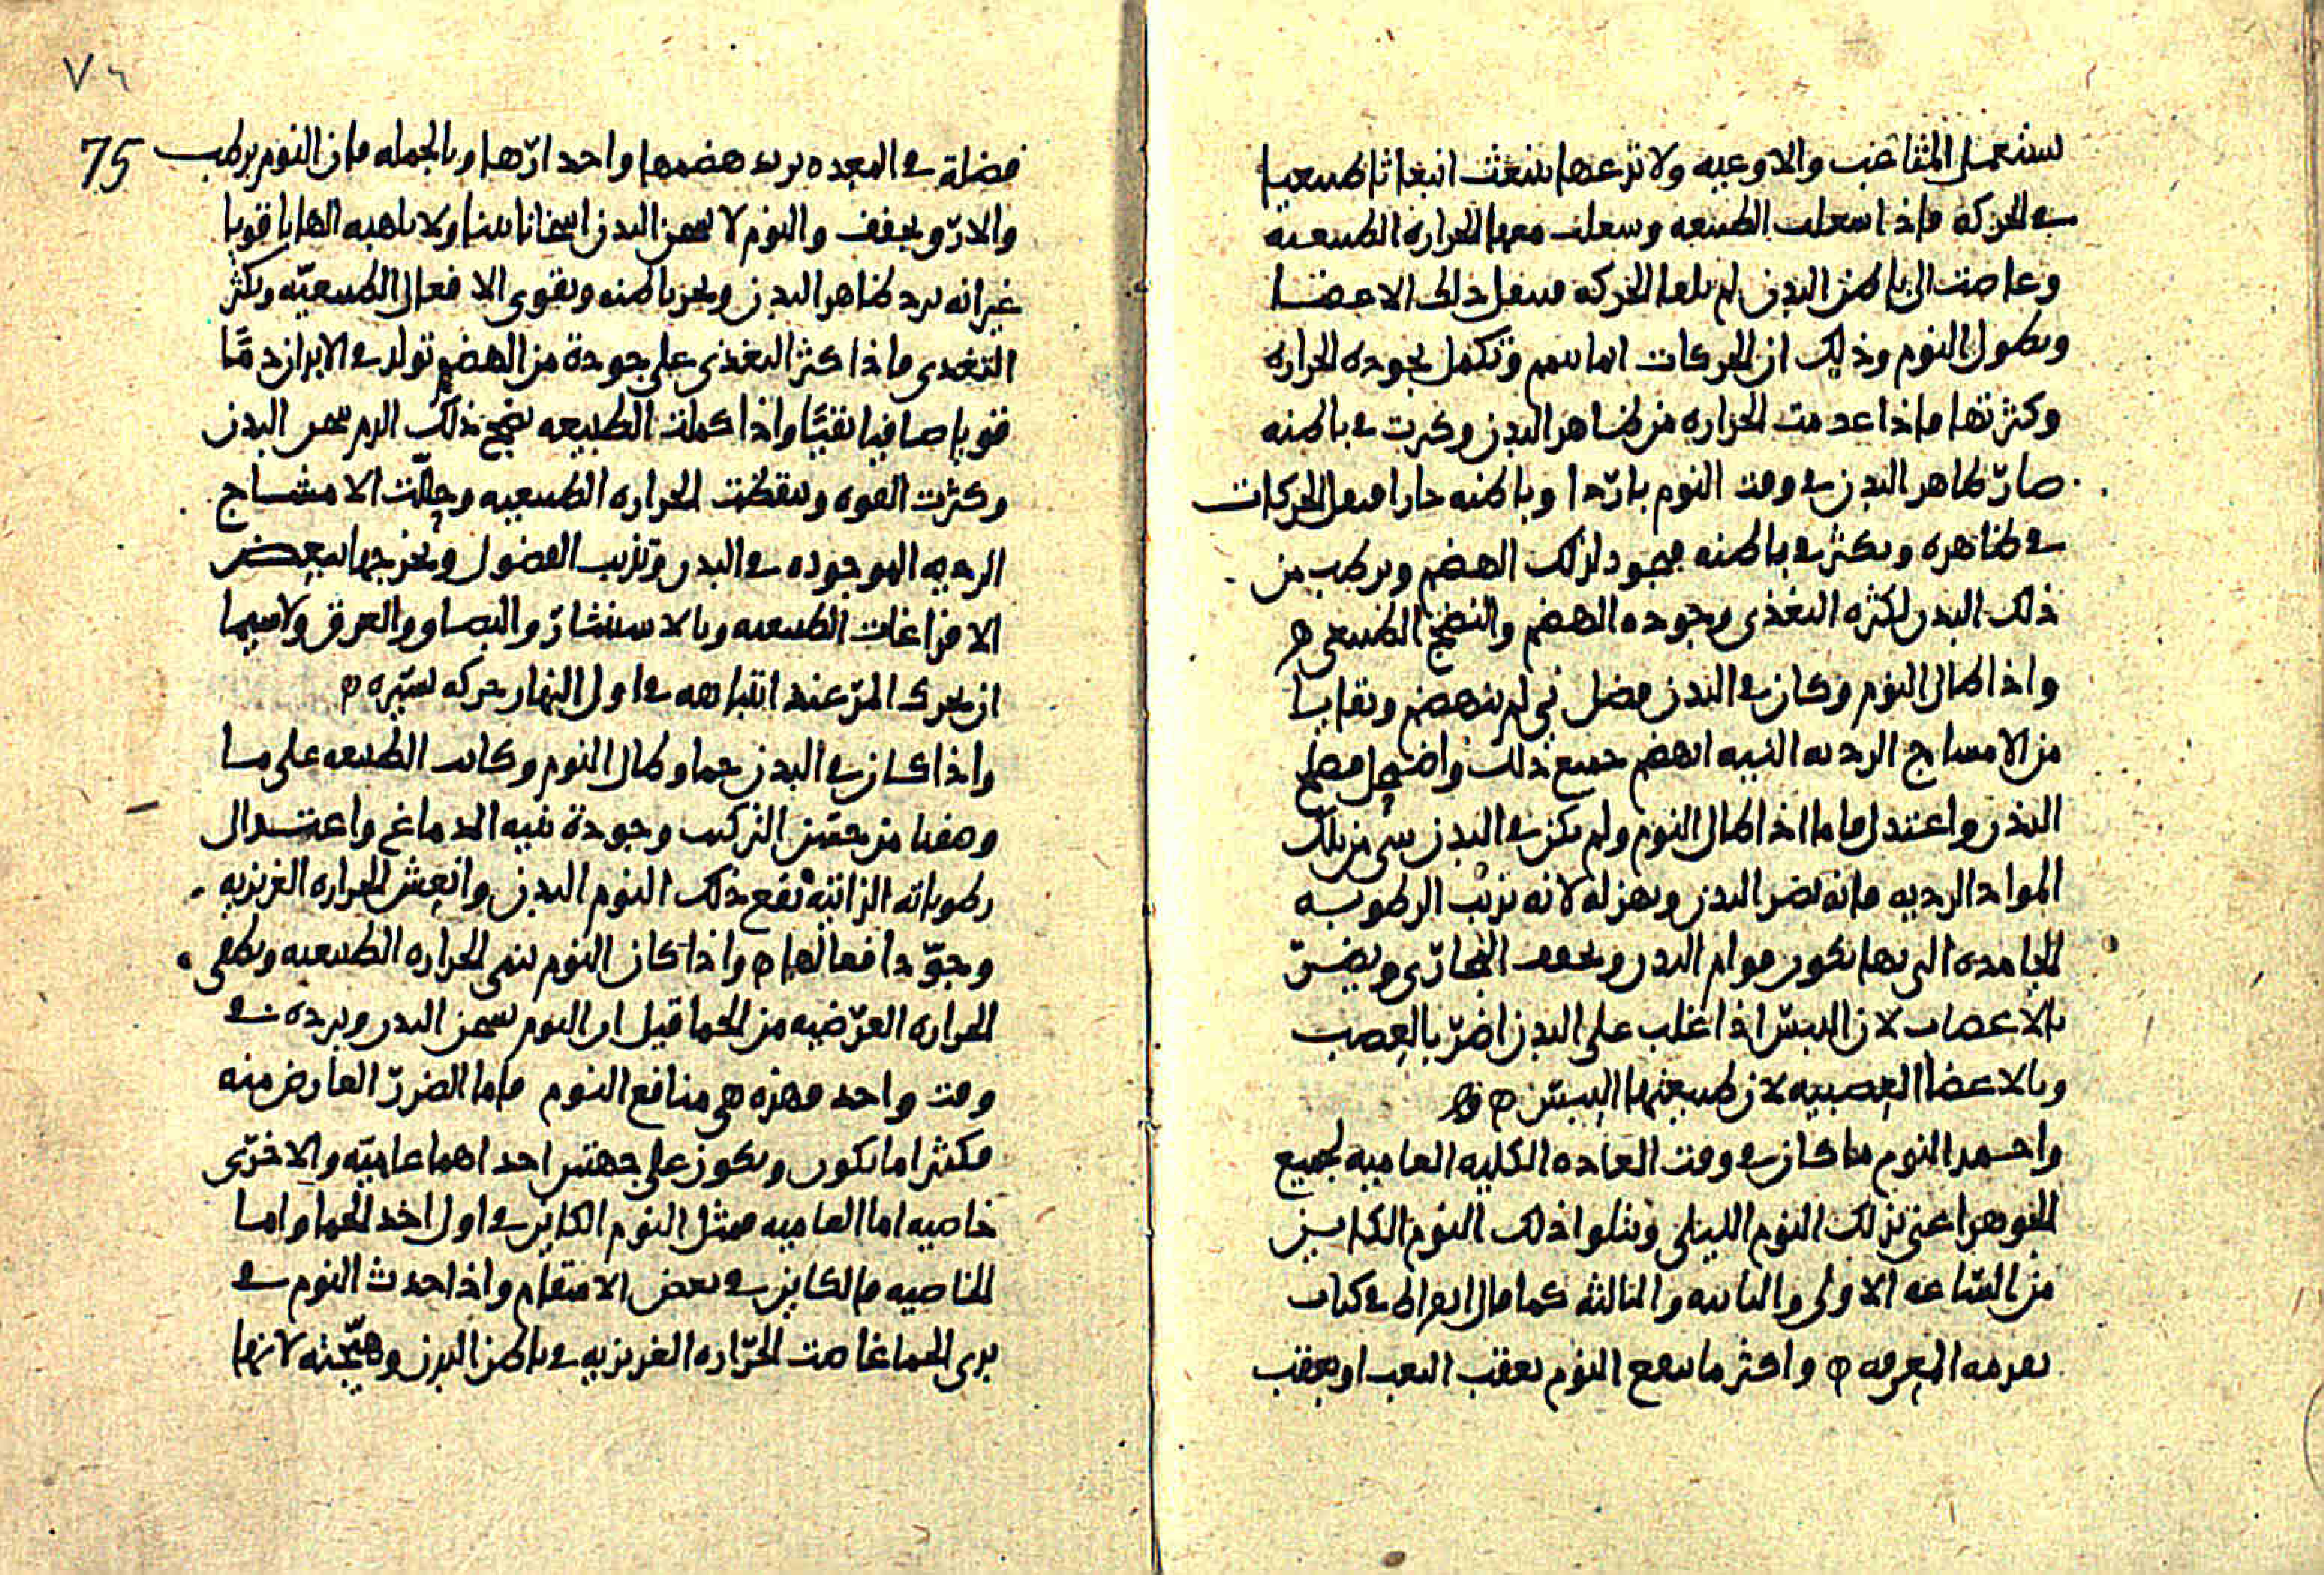 يستعمل المثاغب والاوعيه ولا تزعها تنبعث انبعاثا طبيعيا
في الحركه فاذا اسعلت الطبيعه وسعلت معها الحراره الطبيعيه
وغاصت الى باطن البدن لم بلها الحركه فيقل ذلك الاعضا
ويطول النوم وذلك ان الحركات انما تتم وتكمل بجوده الحراره
وكثرتها فاذا عدمت الحراره من ظاهر البدن وكبرت في باطنه
صار ظاهر البدن في وقت النوم باردا وباطنه حارا فيقل الحركات
في ظاهره وتكثر في باطنه فيجود لذلك الهضم ويرطب من
ذلك البدن لكثره التغذى وجوده الهضم والنضج الطبيعى ه
واذا طال النوم وكان في البدن فضل نى لم ينهضم وبقايا
من الامساج الرديه النييه انهضم جميع ذلك واضمحل فصلح
البدن واعتدل فاما اذا طال النوم ولم يكن في البدن شى من تلك
المواد الرديه فانه يضر البدن ويهزله لانه يذيب الرطوبه
الجامده التى بها يكون قوام البدن ويجفف المجارى ويضر
بالاعصاب لان اليبس اذا غلب على البدن اضر بالعصب
وبالاعضا العصبيه لان طبيعتها اليبس ه
واحمد النوم ما كان في وقت العاده الكليه العاميه لجميع
الجوهر اعنى بذلك النوم الليلى ويتلوا ذلك النوم الكاين
من الساعه الاولى والثانيه والثالثه كما قال ابقراط في كتاب
تقدمه المعرفه ه واكثر ما ينفع النوم بعقب التعب او بعقب
75
فضلة في المعده يريد هضمها واحدارها وبالجمله فان النوم يرطب
والارق يجفف والنوم لا يسخن البدن اسخانا بينا ولا يلهبه الهابا قويا
غير انه يبرد ظاهر البدن ويحر باطنه ويقوى الافعال الطبيعيه ويكثر
التغدى فاذا كثر التغذى على جودة من الهضم تولد في الابدان دما
قويا صافيا نقيا واذا كملت الطبيعه نضج ذلك الدم سمن البدن
وكثرت القوه وتيقظت الحراره الطبيعيه وحللت الامشاج
الرديه الموجوده في البدن وتذيب الفضول وتخرجها ببعض
الافراغات الطبيعيه وبالاستنثار والبصاق والعرق ولاسيما
ان يحرك المر عند انتباهه في اول النهار حركه يسيره ه
واذا كان في البدن حما وطال النوم وكانت الطبيعه على ما
وصفنا من حسن التركيب وجودة بنيه الدماغ واعتدال
رطوباته الزاتيه نفع ذلك النوم البدن وانعش الحراره الغريزيه
وجود افعالها ه واذا كان النوم ينمى الحراره الطبيعيه ويطفى
الحراره العرضيه من الحما قيل ان النوم يسخن البدن ويبرده في
وقت واحد فهذه هى منافع النوم فاما الضرر العارض منه
فكثيرا ما يكون ويكون على جهتين احداهما عاميه والاخرى
خاصيه اما العاميه فمثل النوم الكاين في اول اخذ الحما واما
الخاصيه فالكاين في بعض الاسقام واذا حدث النوم في
بدى الحما غاصت الحراره الغريزيه في باطن البدن وهيجته لانها